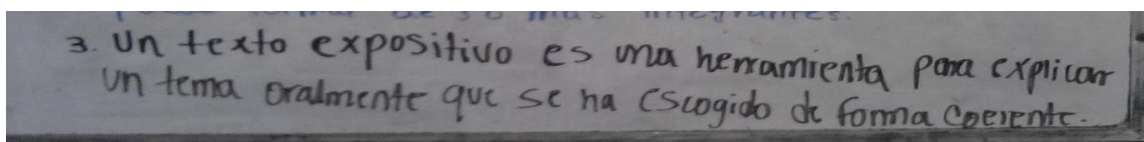 3. Un texto expositivo es una herramienta para explicar
un tema oralmente que se ha escogido de forma coerente.